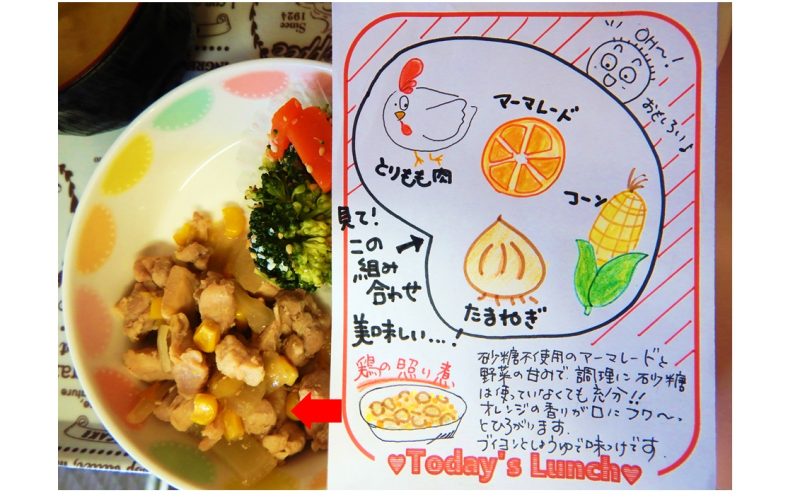 Since
1924
OH〜!
おもしろい♪
アーマレード
とりもも肉
コーン
たまねぎ
見て!
この
組み
合わせ
美味しい…!
鶏の照り煮
砂糖不使用のアーマレードと
野菜の甘みで、調理に砂糖
は使っていなくても充分!!
オレンジの香りが口にフワ〜っ
とひろがります。
ブイヨンとしょうゆで味つけです。
♥Today's Lunch♥